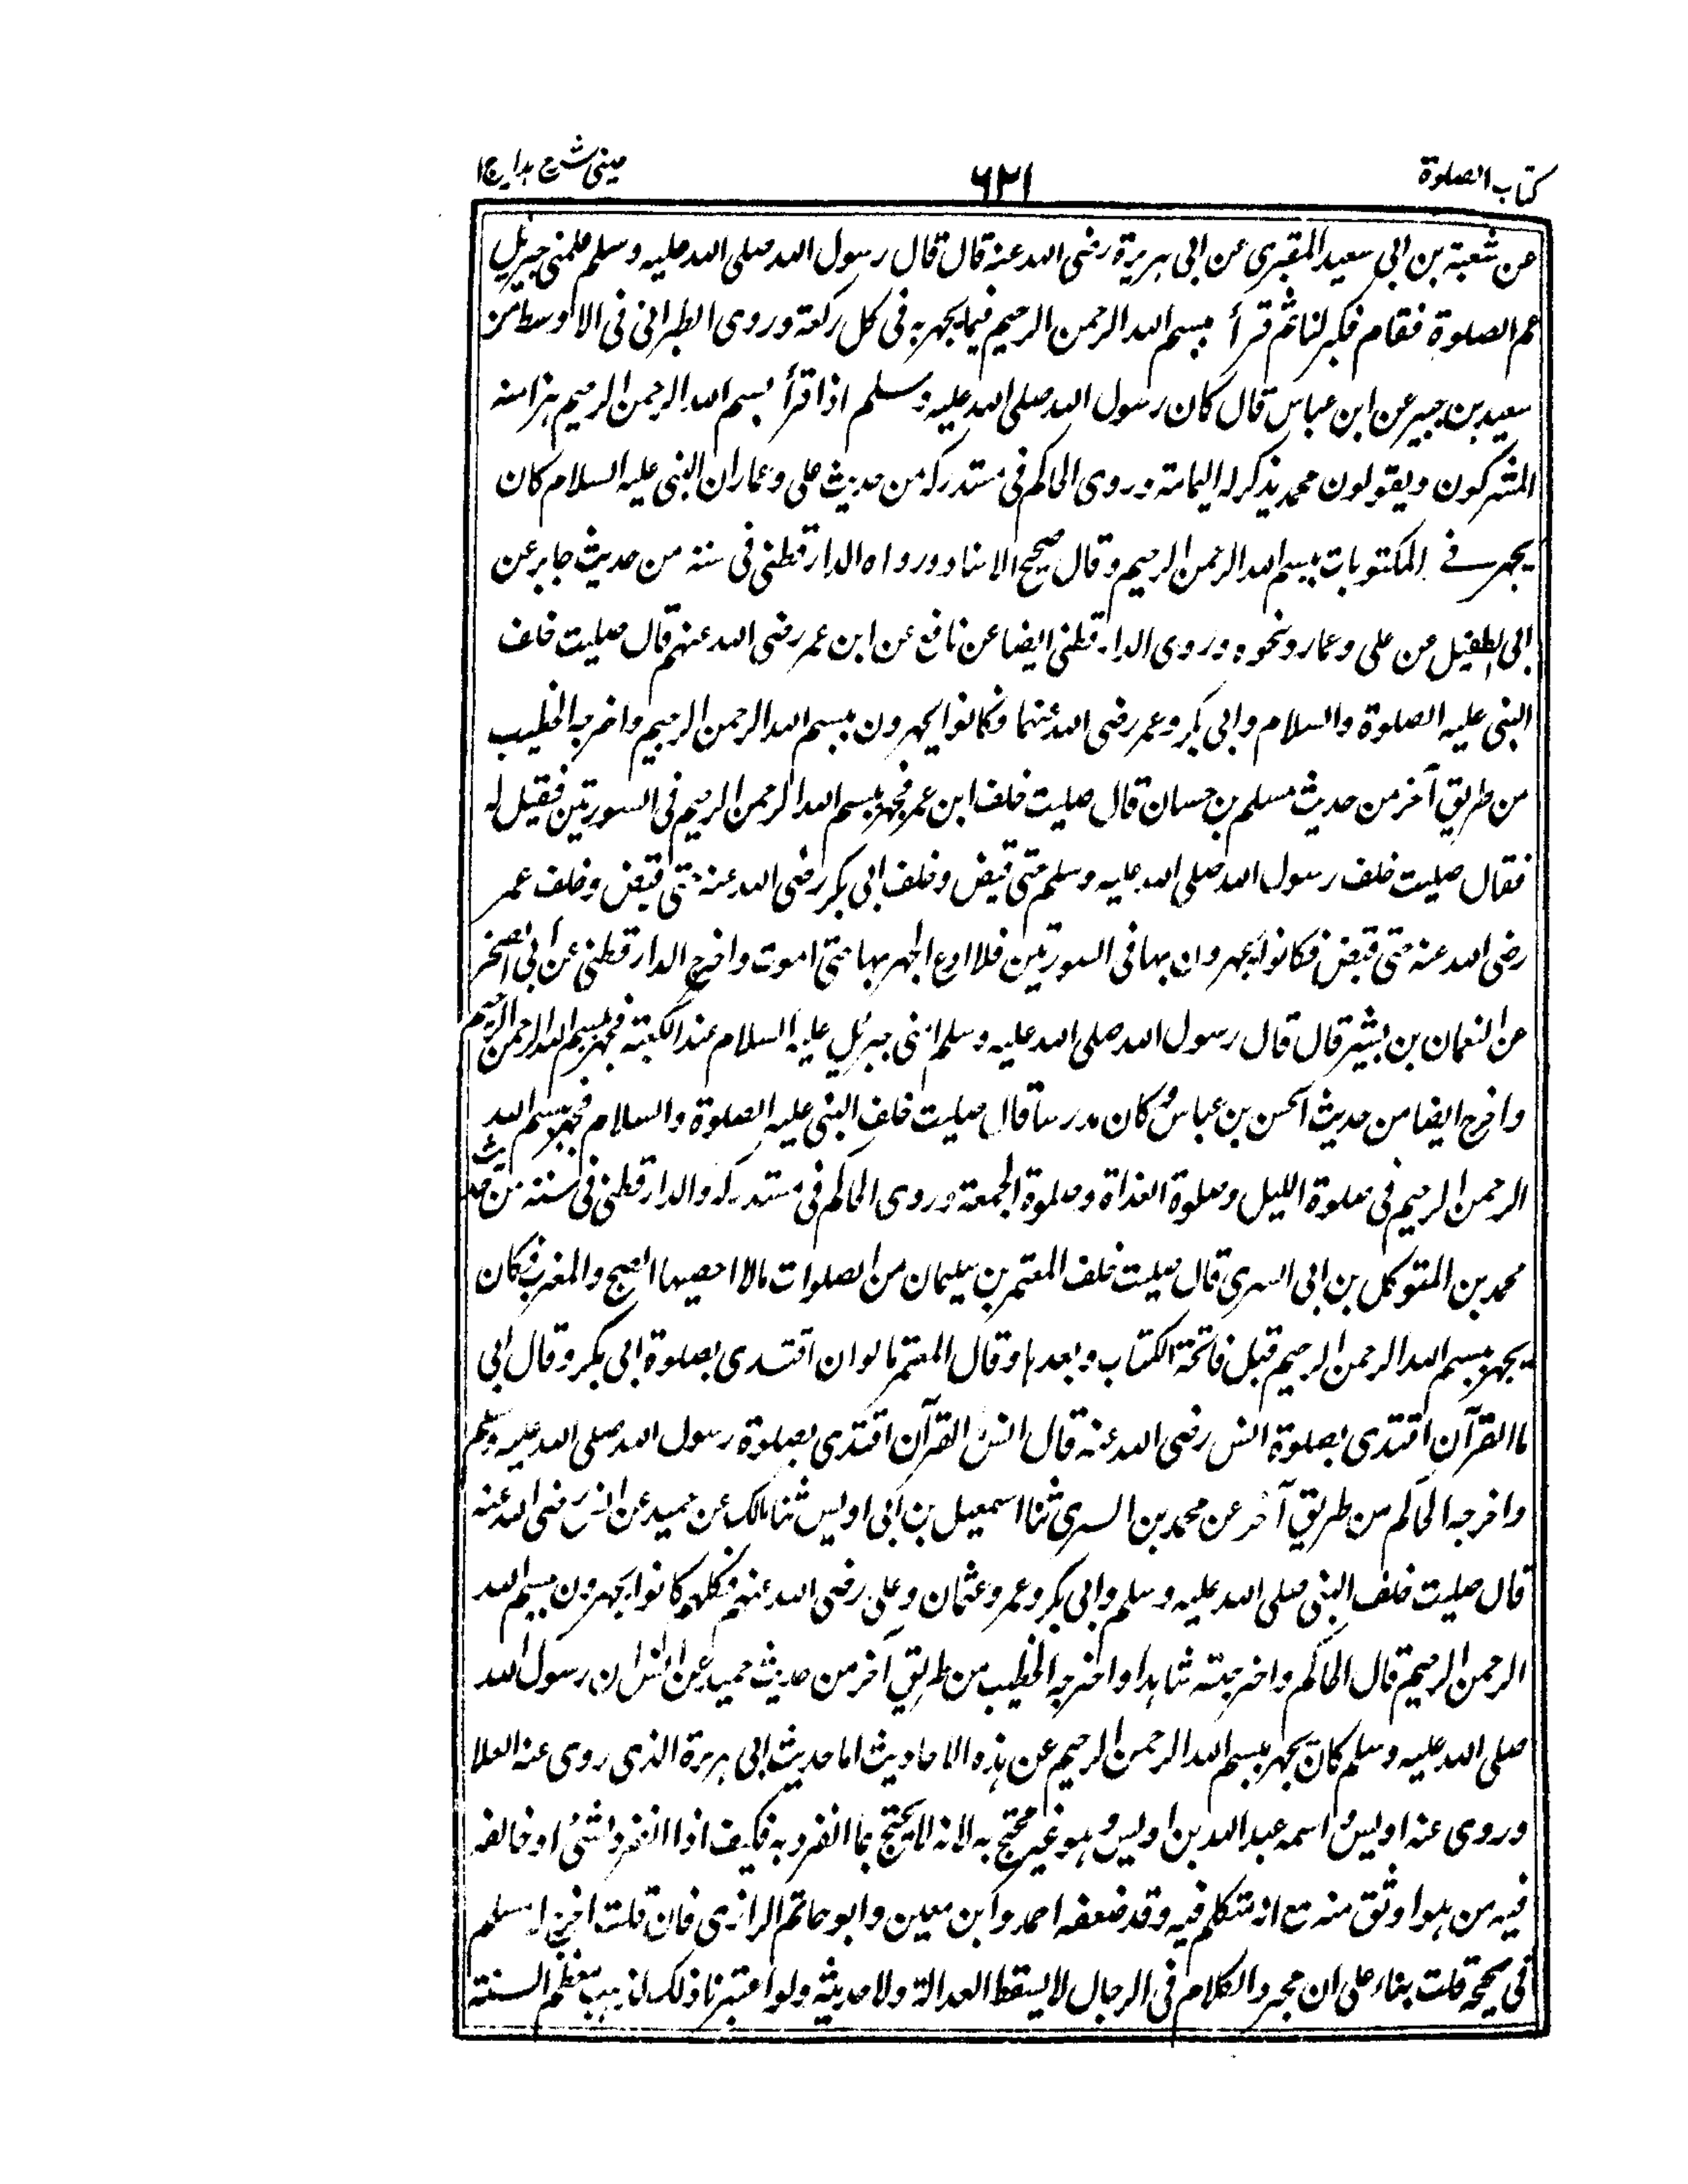 كتاب الصلوة
٦٢١
عيني شرح هدايه ج ١
عن شعبة بن ابي سعيد المقبري عن ابي هريرة رضى الله عنه قال قال رسول الله صلى الله عليه وسلم علمني جبريل
عم الصلوة فقام فكبر لنا ثم قرأ بسم الله الرحمن الرحيم فيما يجهر به في كل ركعة وروى الطبراني في الاوسط من
سعيد بن جبير عن ابن عباس قال كان رسول الله صلى الله عليه وسلم اذا قرأ بسم الله الرحمن الرحيم هزا منه
المشركون ويقولون محمد يذكر اله اليمامة وروى الحاكم في مستدركه من حديث علي وعمار ان النبي عليه السلام كان
يجهر في المكتوبات ببسم الله الرحمن الرحيم وقال صحيح الاسناد ورواه الدارقطني في سننه من حديث جابر عن
ابي الطفيل عن علي وعمار ونحوه وروى الدارقطني ايضا عن نافع عن ابن عمر رضى الله عنهم قال صليت خلف
النبي عليه الصلوة والسلام وابي بكر وعمر رضى الله عنهما فكانوا يجهرون ببسم الله الرحمن الرحيم واخرجه الخطيب
من طريق آخر من حديث مسلم بن حسان قال صليت خلف ابن عمر فجهر ببسم الله الرحمن الرحيم في السورتين فقيل له
فقال صليت خلف رسول الله صلى الله عليه وسلم حتى قبض وخلف ابي بكر رضى الله عنه حتى قبض وخلف عمر
رضى الله عنه حتى قبض فكانوا يجهرون بها في السورتين فلا ادع الجهر بها حتى اموت واخرج الدارقطني عن ابي الضحى
عن النعمان بن بشير قال قال رسول الله صلى الله عليه وسلم امني جبرئيل عليه السلام عند الكعبة فجهر ببسم الله الرحمن الرحيم
واخرج ايضا من حديث الحسن بن عباس وكان مدرسا قال صليت خلف النبي عليه الصلوة والسلام فجهر ببسم الله
الرحمن الرحيم في صلوة الليل وصلوة الغداة وصلوة الجمعة وروى الحاكم في مستدركه والدارقطني في سننه من حديث
محمد بن المتوكل بن ابي السري قال صليت خلف المعتمر بن سليمان من الصلوات مالا احصيها الصبح والمغرب فكان
يجهر ببسم الله الرحمن الرحيم قبل فاتحة الكتاب وبعدها وقال المعتمر ما لوان اقتدى بصلوة ابي بكر وقال ابي
ما القرآن اقتدى بصلوة انس رضى الله عنه قال انس القرآن اقتدى بصلوة رسول الله صلى الله عليه وسلم
واخرجه الحاكم من طريق آخر عن محمد بن السري ثنا اسمعيل بن ابي اويس ثنا مالك عن حميد عن انس رضى الله عنه
قال صليت خلف النبي صلى الله عليه وسلم وابي بكر وعمر وعثمان وعلي رضى الله عنهم فكلهم كانوا يجهرون ببسم الله
الرحمن الرحيم قال الحاكم واخرجته شاهدا واخرجه الخطيب من طريق آخر من حديث حميد عن انس ان رسول الله
صلى الله عليه وسلم كان يجهر ببسم الله الرحمن الرحيم عن هذه الاحاديث اما حديث ابي هريرة الذي روى عنه العلا
وروى عنه اويس واسمه عبد الله بن اويس وهو غير محتج به لانه لا يحتج بما انفرد به فكيف اذا انفرد بشئ او خالفه
فيه من هو اوثق منه مع انه متكلم فيه وقد ضعفه احمد وابن معين وابو حاتم الرازي فان قلت اخرج له مسلم
في صحيحه قلت بناء على ان مجرد الكلام في الرجال لا يسقط العدالة ولا حديثه ولو اعتبرنا ذلك لذهب معظم السنة